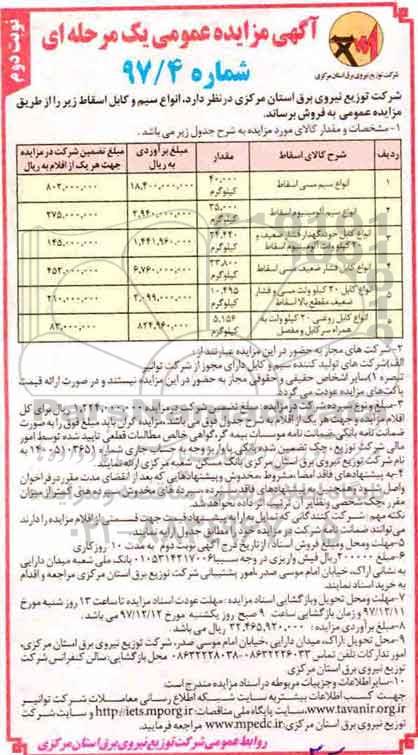 آگهی مزایده عمومی یک مرحله ای
شماره ۹۷/۴
نوبت دوم
شرکت توزیع نیروی برق استان مرکزی
شرکت توزیع نیروی برق استان مرکزی درنظر دارد، انواع سیم و کابل اسقاط زیر را از طریق
مزایده عمومی به فروش برساند.
۱- مشخصات و مقدار کالای مورد مزایده به شرح جدول زیر می باشد.
ردیف شرح کالای اسقاط مقدار مبلغ برآوردی به ریال مبلغ تضمین شرکت در مزایده جهت هر یک از اقلام به ریال
۱ انواع سیم مسی اسقاط ۴۰,۰۰۰ کیلوگرم ۱۸,۴۰۰,۰۰۰,۰۰۰ ۸۰۲,۰۰۰,۰۰۰
۲ انواع سیم آلومینیوم اسقاط ۳۵,۰۰۰ کیلوگرم ۲,۹۴۰,۰۰۰,۰۰۰ ۲۷۵,۰۰۰,۰۰۰
۳ انواع کابل خودنگهدار فشار ضعیف و ۲۰ کیلو ولت آلومینیوم اسقاط ۳۴,۲۲۰ کیلوگرم ۱,۴۴۱,۹۶۰,۰۰۰ ۱۴۵,۰۰۰,۰۰۰
۴ انواع کابل فشار ضعیف مسی اسقاط ۳۳,۸۰۰ کیلوگرم ۶,۷۶۰,۰۰۰,۰۰۰ ۴۵۲,۰۰۰,۰۰۰
۵ انواع کابل ۲۰ کیلو ولت مسی و فشار ضعیف مقطع بالا اسقاط ۱۰,۴۹۵ کیلوگرم ۲,۰۹۹,۰۰۰,۰۰۰ ۲۱۰,۰۰۰,۰۰۰
۶ انواع کابل روغنی ۲۰ کیلو ولت به همراه سرکابل و مفصل ۵,۱۵۶ کیلوگرم ۸۲۴,۹۶۰,۰۰۰ ۸۳,۰۰۰,۰۰۰
۲- شرکت های مجاز به حضور در این مزایده عبارتند از:
الف) شرکت های تولید کننده سیم و کابل دارای مجوز از شرکت توانیر
تبصره ۱) سایر اشخاص حقیقی و حقوقی مجاز به حضور در این مزایده نیستند و در صورت ارائه قیمت
پاکت‌های مزایده عودت می گردد.
۳- مبلغ و نوع سپرده شرکت در مزایده: مبلغ تضمین شرکت در مزایده ریال برای کل
اقلام مزایده و جهت هر یک از اقلام به شرح جدول فوق می باشد، مزایده گران باید مبلغ فوق را به صورت
ضمانت نامه بانکی، ضمانت نامه موسسات بیمه گر، گواهی خالص مطالبات قطعی تایید شده توسط امور
مالی شرکت توزیع، چک تضمین شده بانکی یا واریز وجه به حساب جاری شماره
نام شرکت توزیع نیروی برق استان مرکزی بانک مسکن شعبه مرکزی ارائه نمایند.
۴- به پیشنهادهای فاقد امضا، مشروط، مخدوش و پیشنهادهایی که بعد از انقضای مدت مقرر در فراخوان
واصل شود و همچنین به پیشنهادهای فاقد سپرده، سپرده های مخدوش، سپرده های کمتر از میزان
مقرر، چک شخصی و نظایر آن ترتیب اثر داده نخواهد شد.
نکته مهم: شرکت کنندگانی که تمایل به ارائه پیشنهاد قیمت جهت قسمتی از اقلام مزایده را دارند
می توانند، ضمانت نامه شرکت در مزایده خود را مطابق جدول ارائه نمایند.
۵- مهلت و محل دریافت و فروش اسناد: از تاریخ درج آگهی نوبت دوم به مدت ۱۰ روز کاری
۶- مبلغ ۲۰۰,۰۰۰ ریال فیش واریزی در وجه سیبا ۰۱۰۵۳۱۴۲۱۷۰۰۶ بانک ملی شعبه میدان دارایی
به نشانی اراک، خیابان امام موسی صدر بامور پشتیبانی شرکت توزیع برق استان مرکزی مراجعه و اقدام
به خرید اسناد نمایند.
۷- مهلت و محل تحویل و بازگشایی اسناد مزایده: مهلت عودت اسناد مزایده تا ساعت ۱۳ روز شنبه مورخ
۹۷/۱۲/۱۱ و زمان بازگشایی ساعت ۹ صبح روز یکشنبه مورخ ۹۷/۱۲/۱۲ می باشد.
۸- مبلغ برآوردی مزایده: ۳۲,۴۶۵,۹۲۰,۰۰۰ ریال می باشد.
۹- محل تحویل: اراک، میدان دارایی، خیابان امام موسی صدر، شرکت توزیع نیروی برق استان مرکزی،
امور تدارکات تلفن تماس ۰۸۶۳۲۲۲۶۰۳۳-۰۸۶۳۲۲۲۸۰۳۸ محل بازگشایی: سالن کنفرانس شرکت
توزیع برق استان مرکزی.
۱۰- سایر اطلاعات و جزییات مربوطه در اسناد مزایده مندرج است.
جهت کسب اطلاعات بیشتر به سایت شبکه اطلاع رسانی معاملات شرکت توانیر
www.tavanir.org.ir، سایت پایگاه ملی مناقصات http://iets.mporg.ir و سایت شرکت
توزیع نیروی برق استان مرکزی www.mpedc.ir مراجعه فرمایید.
روابط عمومی شرکت توزیع نیروی برق استان مرکزی